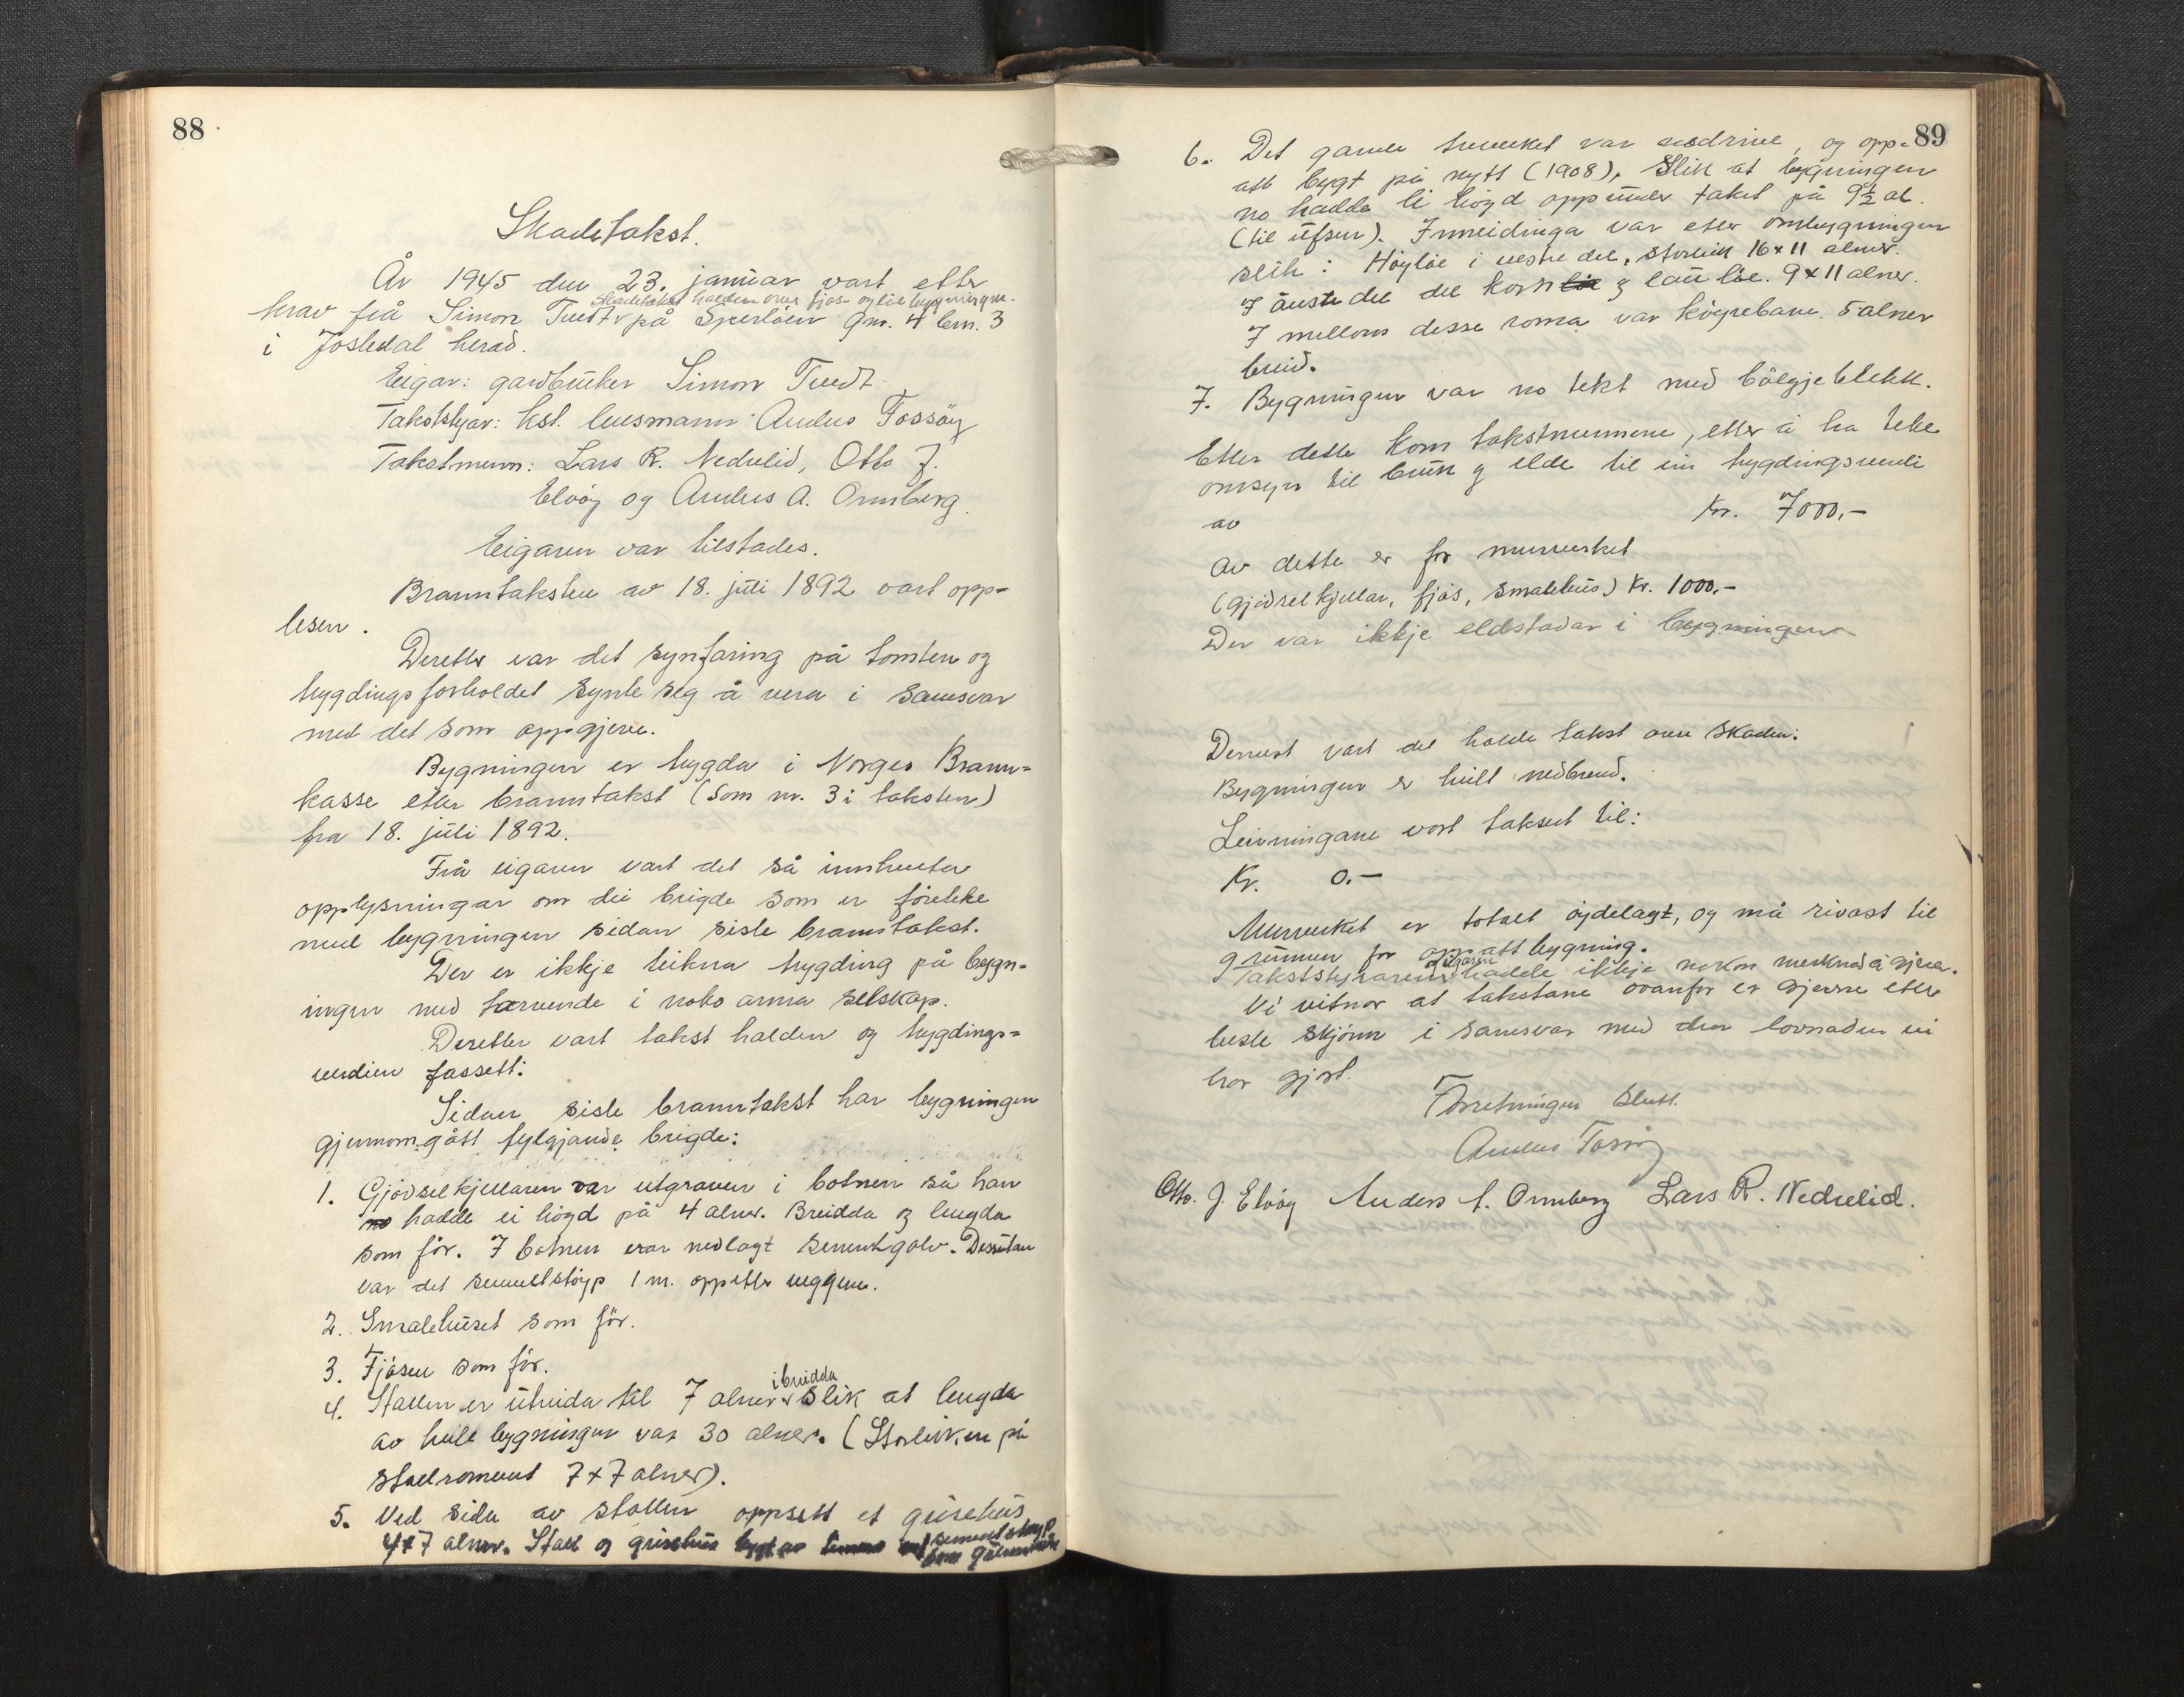 88
Skadetakst.
År 1945 den 23. januar vart etter
skadetakst halden over fjos- og löebygningen.
krav frå Simon Tuedt på Sperlöen Gnr. 4 bnr. 3
i Jostedal herad.
Eigar: gardbruker Simon Tuedt
Takststyrar: kst. lensmann Anders Fossöy
Takstmenn: Lars R. Nedrelid, Otto J.
Elvöy og Anders A. Ormberg.
Eigaren var tilstades.
Branntaksten av 18. juli 1892 vart opp=
lesen.
Deretter var det synfaring på tomten og
trygdingsforholdet synte seg å vera i samsvar
med det som oppgjeve.
Bygningen er trygda i Norges Brann=
kasse etter branntakst (som nr. 3 i taksten)
fra 18. juli 1892.
Frå eigaren vart det så innhenta
opplysningar om dei brigde som er företeke
med bygningen sidan siste branntakst.
Der er ikkje teikna trygding på bygn=
ingen med tarvende i noko anna selskap.
Deretter vart takst halden og trygdings=
verdien fassett:
Sidan siste branntakst har bygningen
gjennomgått fylgjande brigde:
1. Gjödselkjellaren var utgraven i botnen så han
hadde ei högd på 4 alner. Breidda og lengda
som för. I botnen var nedlagt sementgolv. Dessutan
var det sementstöyp 1 m. oppetter veggene.
2. Smalehuset som för.
3. Fjösen som för.
i breidda
4. Stallen er utvida til 7 alner slik at lengda
av heile bygningen var 30 alner. (Storleiken på
stallroment 7x7 alner).
5. Ved sida av stallen oppsett et grisehus
4x7 alner. Stall og grisehus bygt av sementstöyp
89
6. Det gamle treverket var nedrive, og opp=
att bygt på nytt (1908), slik at bygningen
no hadde ei högd oppunder taket på 9½ al.
(til ufsen). Innreidinga var etter ombygningen
slik: Höylöe i vestre del, storleik 16x11 alner.
I austre del det korn og lauvlöe. 9x11 alner.
I mellom desse roma var köyrebane. 5 alner
breid.
7. Bygningen var no tekt med bölgjeblekk.
Etter dette kom takstmennene, etter å ha teke
omsyn til bruk og elde til ein trygdingsverdi
av Kr. 7000,-
Av dette er for murverket
(gjödselkjellar, fjös, smalehus) Kr. 1000,-
Der var ikkje eldstadar i bygningen
Dernest vart det halde takst over skaden:
Bygningen er heilt nedbrend.
Leivningane vart taksert til:
Kr. 0.-
Murverket er totalt öydelagt, og må rivast til
grunnen for oppattbygning.
eigaren
Takststyraren hadde ikkje nokon merknad å gjera.
Vi vitnar at takstane ovanfor er gjevne etter
beste skjönn i samsvar med den lovnaden vi
har gjort.
Forretningen slutt.
Anders Fossöy
Otto. J. Elvöy Anders A. Ormberg Lars R. Nedrelid.